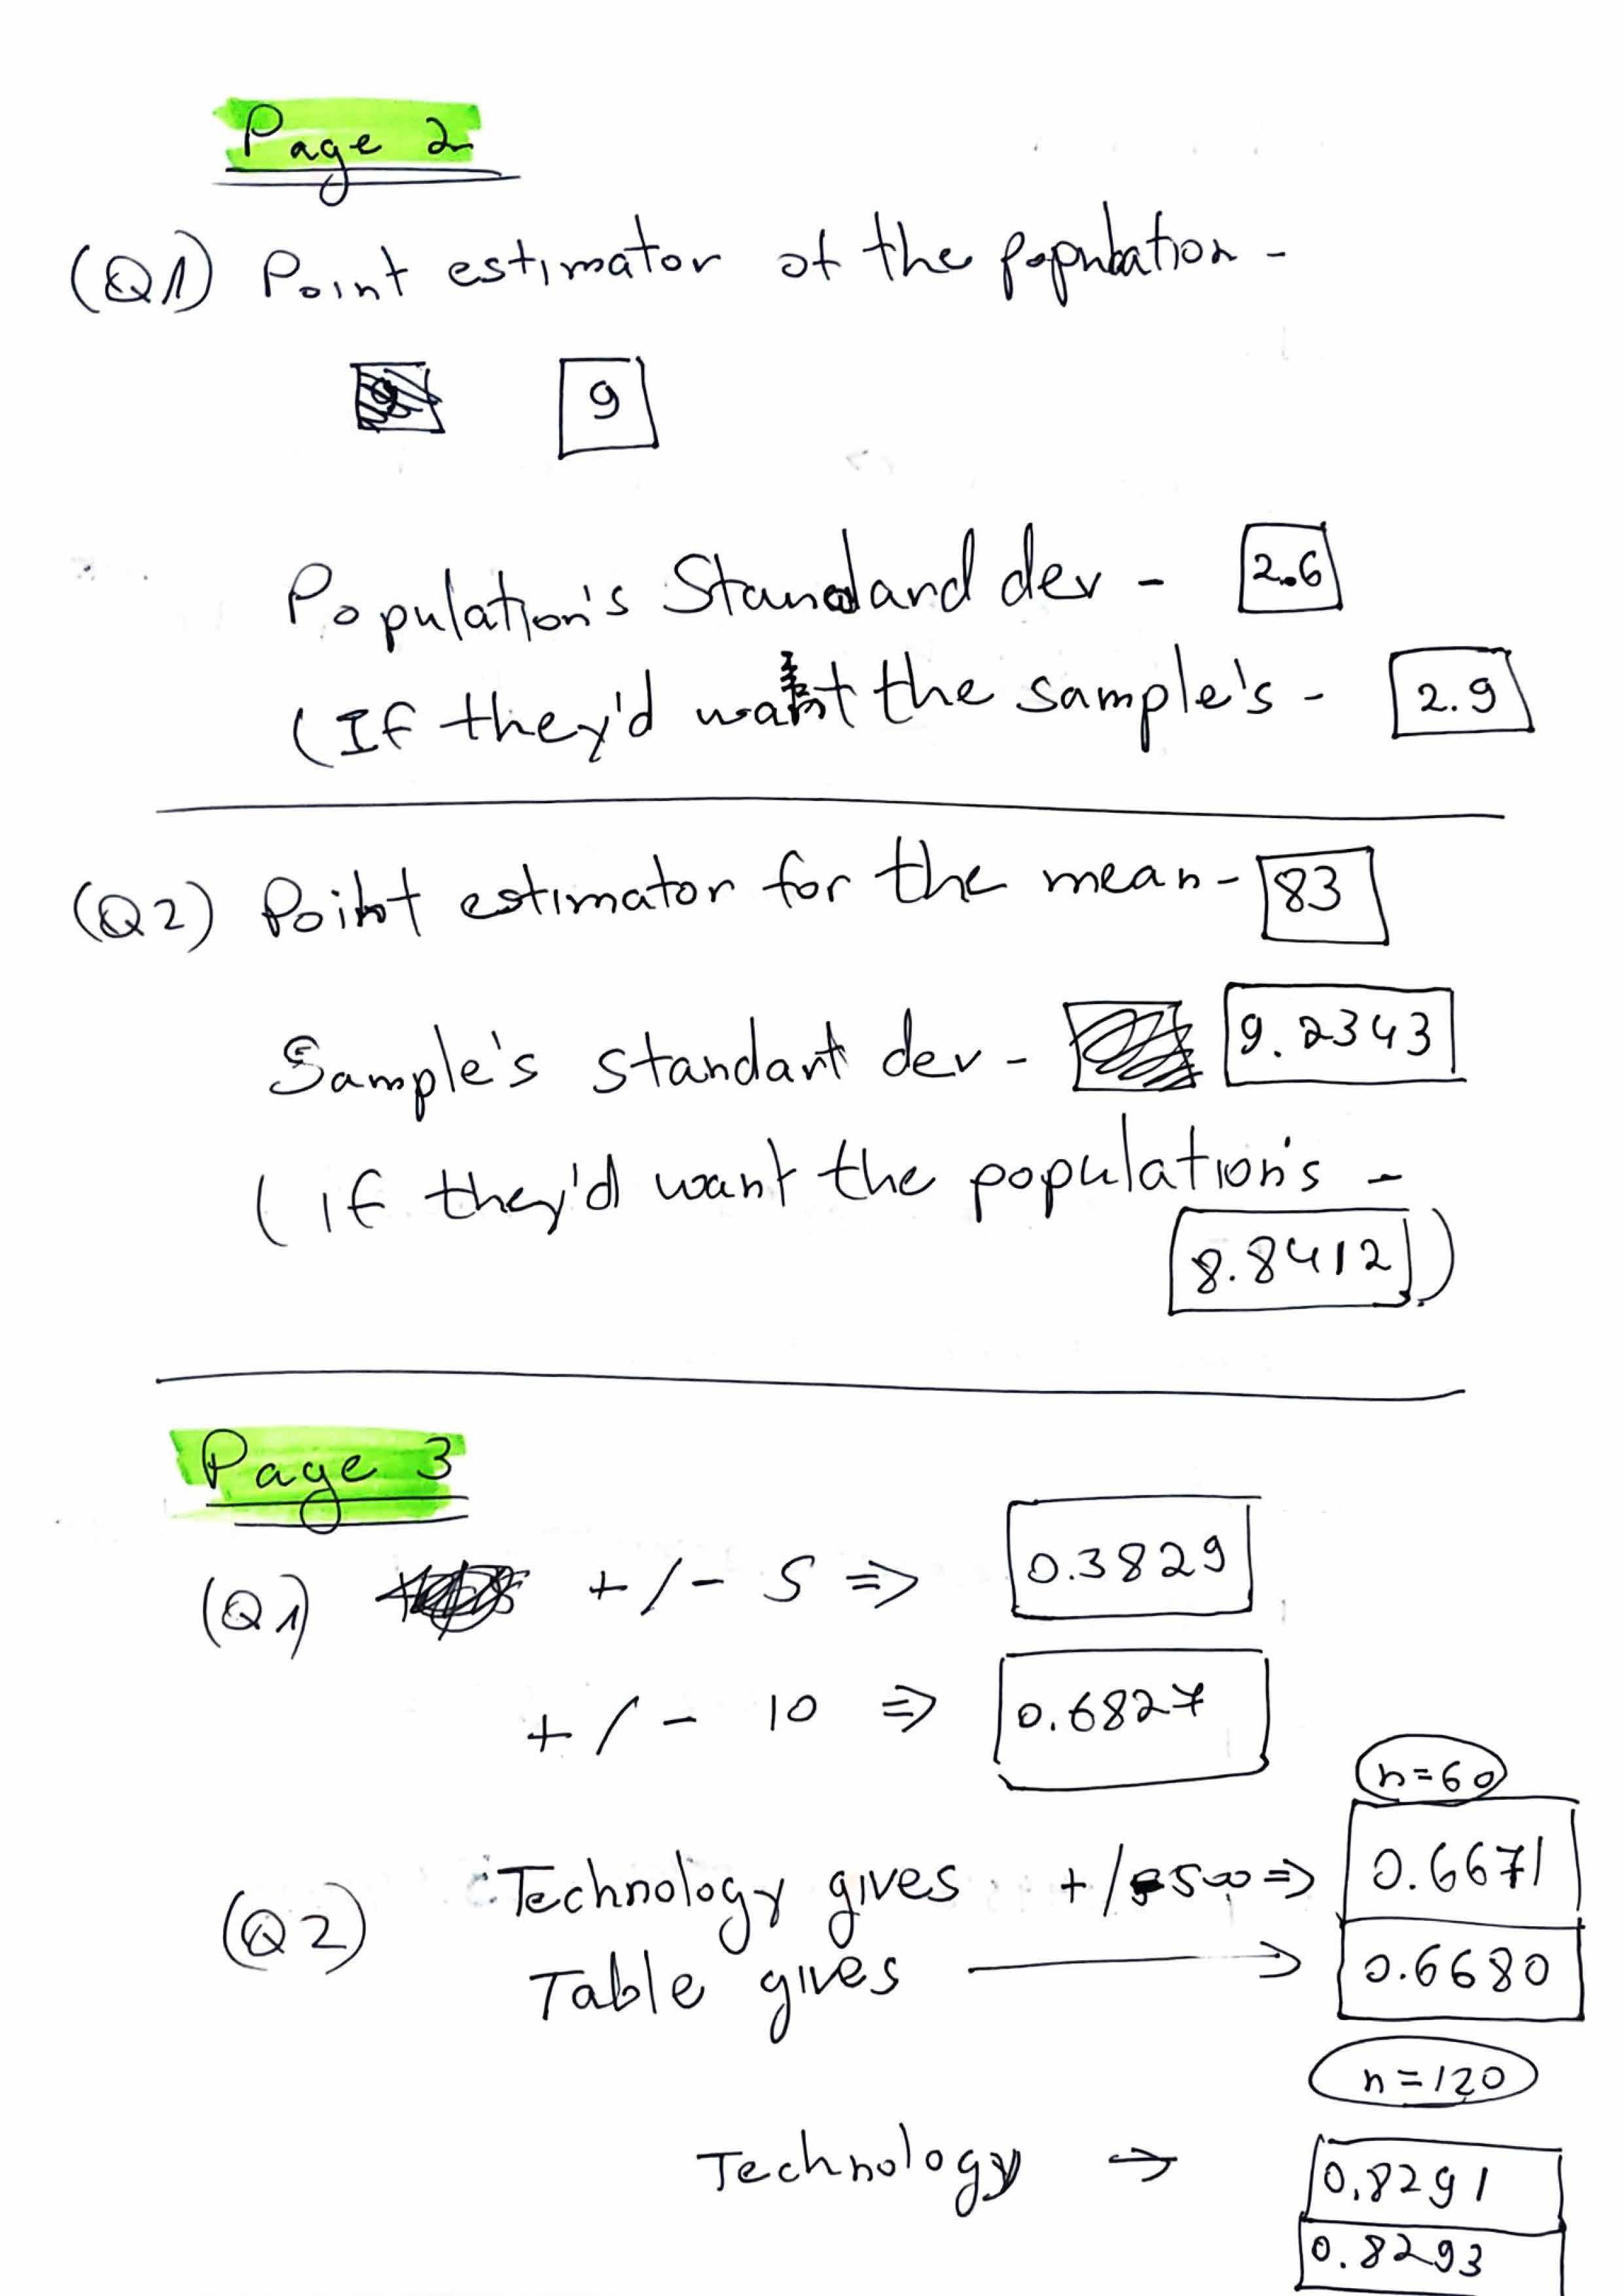 Page 2
(Q1) Point estimator of the population -
9
Population's Standard dev - 2.6
(If they'd want the sample's - 2.9
(Q2) Point estimator for the mean - 83
Sample's standart dev - 9.2343
(if they'd want the population's -
8.8412)
Page 3
(Q1) +/- 5 => 0.3829
+/- 10 => 0.6827
n=60
(Q2) Technology gives +/- 500 => 0.6671
Table gives → 0.6680
n=120
Technology → 0.8291
0.8293